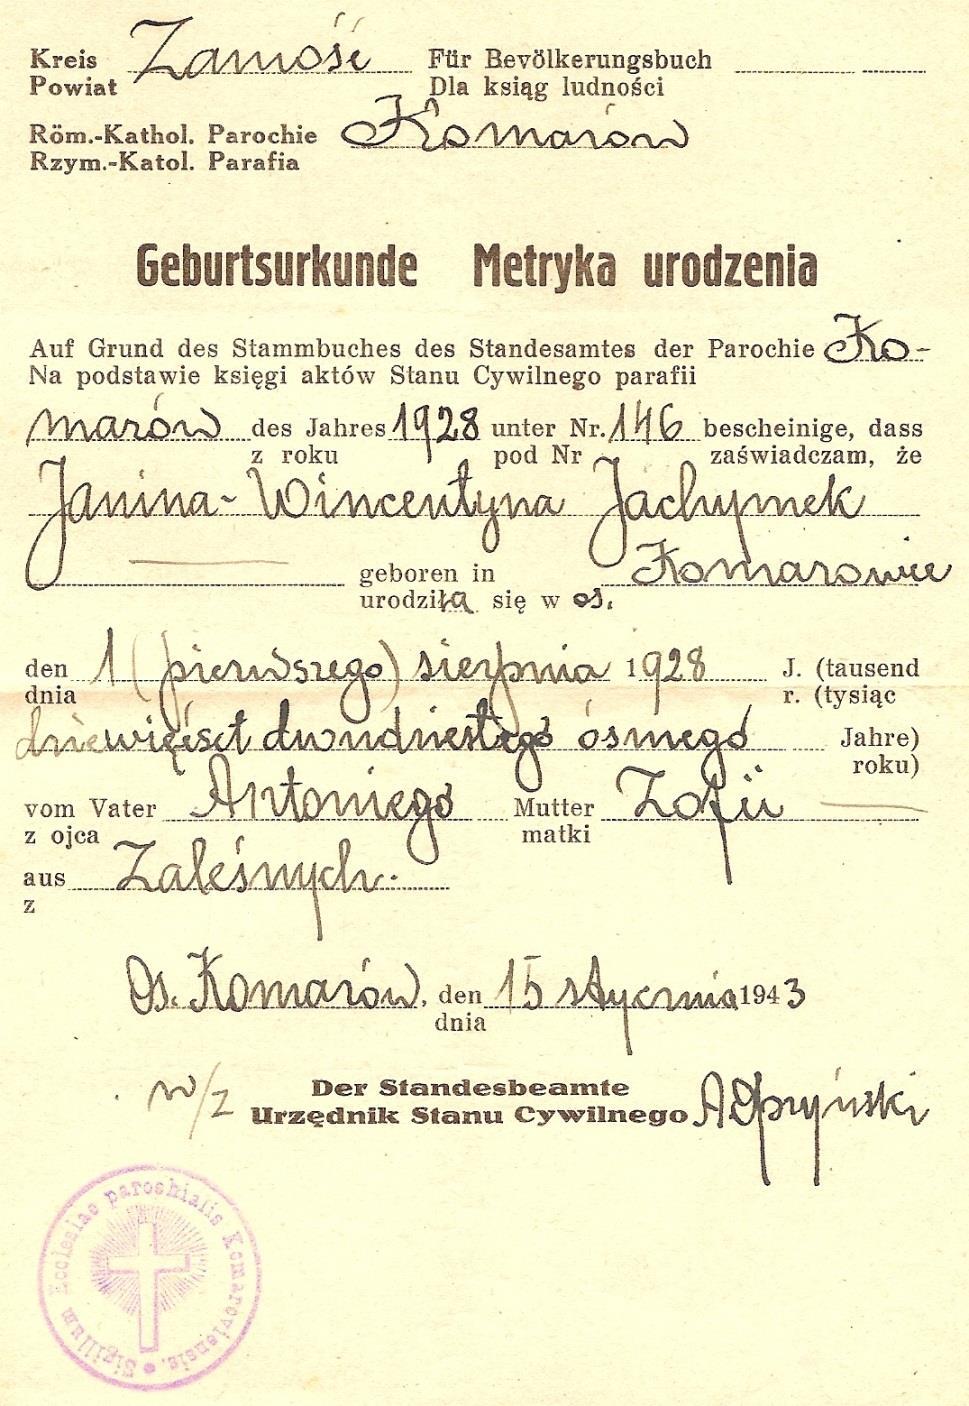 Kreis Zamość Für Bevölkerungsbuch
Powiat Dla ksiąg ludności
Röm.-Kathol. Parochie Komarów
Rzym.-Katol. Parafia
Geburtsurkunde Metryka urodzenia
Auf Grund des Stammbuches des Standesamtes der Parochie Ko-
Na podstawie księgi aktów Stanu Cywilnego parafii
marów des Jahres 1928 unter Nr. 146 bescheinige, dass
z roku pod Nr zaświadczam, że
Janina-Wincentyna Jachymek
geboren in Komarowie
urodziła się w os.
den 1 (pierwszego) sierpnia 1928 J. (tausend
dnia r. (tysiąc
dziewięćset dwudziestego ósmego Jahre)
roku)
vom Vater Antoniego Mutter Zofii
z ojca matki
aus Zaleśnych.
z
Os. Komarów, den 15 stycznia 1943
dnia
w/z Der Standesbeamte
Urzędnik Stanu Cywilnego
Sigillum Ecclesiae parochialis Komaroviensis.